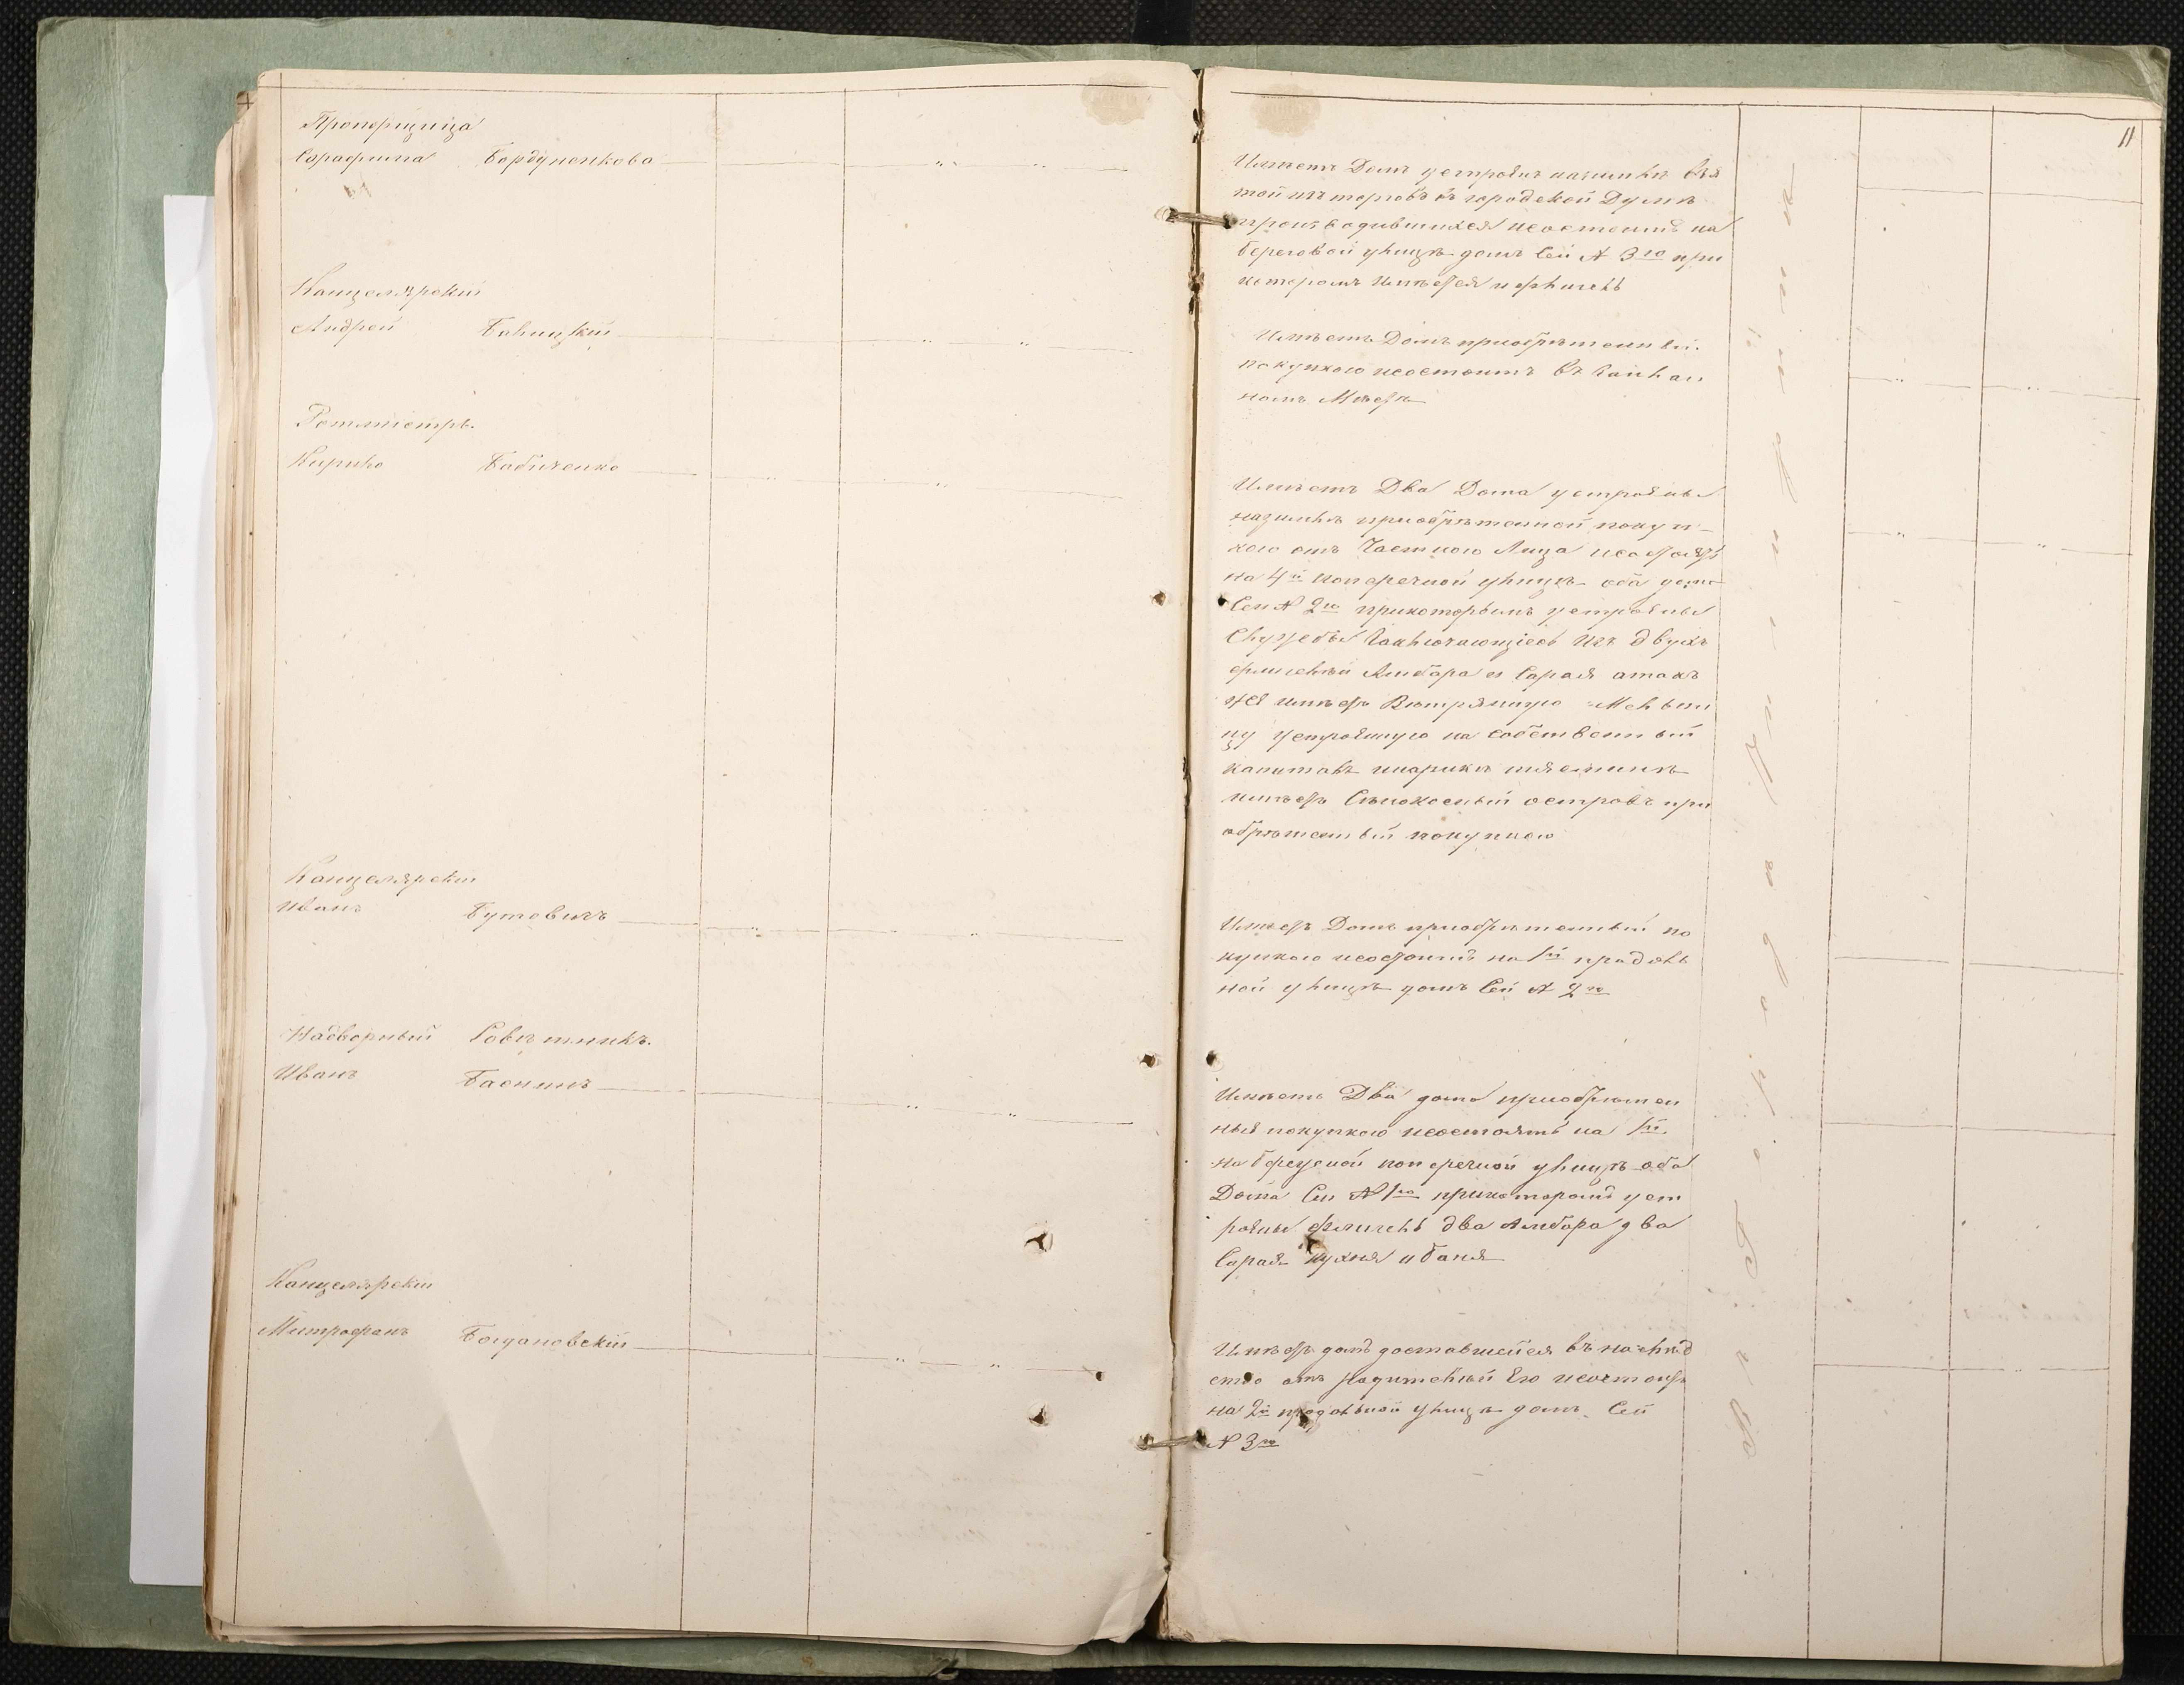 11
Прапорщица
Серафима Бордуненкова
Канцелярскій
Андрей Балицкій
Ротмистръ.
Кирило Бабиченко
Канцелярскій
Иванъ Бутовичъ
Надворный Советникъ.
Иванъ Баснинъ
Канцелярскій
Митрофанъ Богдановскій
Имѣетъ Домъ устроінъ наземлѣ взя
той изъ торговъ въ городской Думѣ
производившихся исостоитъ на
береговой улицѣ домъ Сей № 3го при
которомъ имѣется и флигель
Имѣетъ Домъ приобрѣтенный
покупкою исостоитъ въ
номъ Мѣстѣ
Имѣетъ Два Дома устроіны
наземлѣ приобрѣтенной покуп-
кою отъ Частного Лица исостоятъ
на 4й поперечной улицѣ оба дома
Сеи № 2го прикоторымъ устроіны
Службы заключающіеся изъ двухъ
флигелѣй Амбара и Сарая атакъ
же имѣетъ Вѣтряную Мельни
цу устроіную на собственный
капиталъ
имѣетъ Сѣнокосный островъ при
обрѣтенный покупкою
Имѣетъ Домъ приобрѣтенный по
купкою исостоитъ на 1й продоль
ной улицѣ домъ Сей № 2го
Имѣетъ Два дома приобрѣтен
ныя покупкою исостоятъ на 1й
набережной поперечной улицѣ оба
Дома Сеи № 1го прикоторомъ уст
роіны флигель два Амбара два
Сарая кухня и баня
Имѣетъ домъ доставшейся въ наслѣд
ство отъ родителѣй Его исостоитъ
на 2й продольной улицѣ домъ Сей
№ 3го